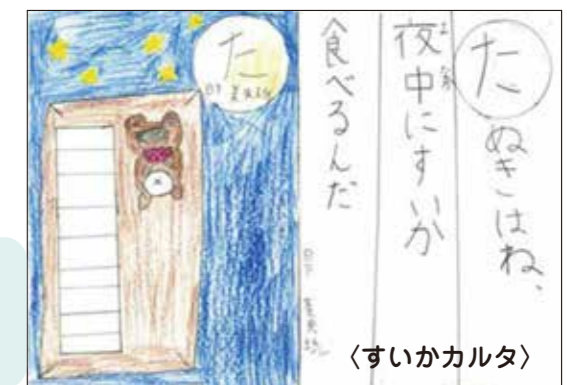 たぬきはね、
夜中にすいか
食べるんだ
た
〈すいかカルタ〉